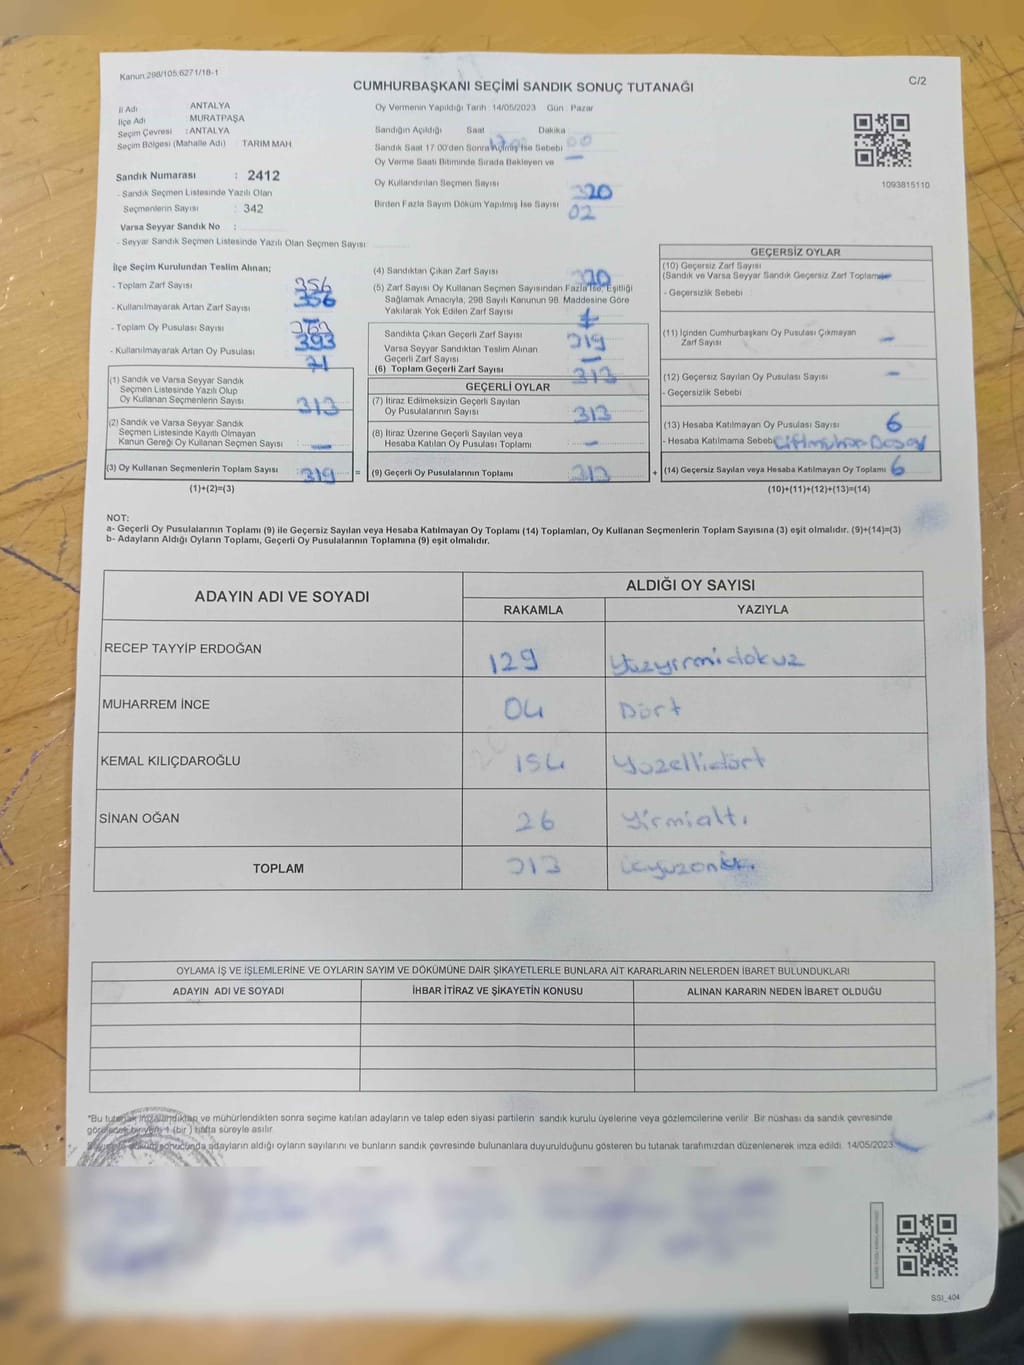 Kanun.298/105;6271/18-1
CUMHURBAŞKANI SEÇİMİ SANDIK SONUÇ TUTANAĞI
C/2
İl Adı ANTALYA
İlçe Adı MURATPAŞA
Seçim Çevresi : ANTALYA
Seçim Bölgesi (Mahalle Adı) TARIM MAH
Sandık Numarası : 2412
- Sandık Seçmen Listesinde Yazılı Olan
Seçmenlerin Sayısı : 342
Varsa Seyyar Sandık No :
- Seyyar Sandık Seçmen Listesinde Yazılı Olan Seçmen Sayısı:
Oy Vermenin Yapıldığı Tarih : 14/05/2023 Gün : Pazar
Sandığın Açıldığı Saat Dakika
Sandık Saat 17:00'den Sonra Açılmış İse Sebebi 00
Oy Verme Saati Bitiminde Sırada Bekleyen ve
Oy Kullandırılan Seçmen Sayısı
320
Birden Fazla Sayım Döküm Yapılmış İse Sayısı 02
1093815110
İlçe Seçim Kurulundan Teslim Alınan;
- Toplam Zarf Sayısı 356
356
- Kullanılmayarak Artan Zarf Sayısı
- Toplam Oy Pusulası Sayısı
393
- Kullanılmayarak Artan Oy Pusulası
(1) Sandık ve Varsa Seyyar Sandık
Seçmen Listesinde Yazılı Olup
Oy Kullanan Seçmenlerin Sayısı 313
(2) Sandık ve Varsa Seyyar Sandık
Seçmen Listesinde Kayıtlı Olmayan
Kanun Gereği Oy Kullanan Seçmen Sayısı : —
(3) Oy Kullanan Seçmenlerin Toplam Sayısı : 319
(1)+(2)=(3)
(4) Sandıktan Çıkan Zarf Sayısı 320
(5) Zarf Sayısı Oy Kullanan Seçmen Sayısından Fazla İse, Eşitliği
Sağlamak Amacıyla, 298 Sayılı Kanunun 98. Maddesine Göre
Yakılarak Yok Edilen Zarf Sayısı
Sandıkta Çıkan Geçerli Zarf Sayısı 319
Varsa Seyyar Sandıktan Teslim Alınan
Geçerli Zarf Sayısı —
(6) Toplam Geçerli Zarf Sayısı 313
GEÇERLİ OYLAR
(7) İtiraz Edilmeksizin Geçerli Sayılan
Oy Pusulalarının Sayısı 313
(8) İtiraz Üzerine Geçerli Sayılan veya
Hesaba Katılan Oy Pusulası Toplamı —
= (9) Geçerli Oy Pusulalarının Toplamı 313
GEÇERSİZ OYLAR
(10) Geçersiz Zarf Sayısı
(Sandık ve Varsa Seyyar Sandık Geçersiz Zarf Toplamı) —
- Geçersizlik Sebebi
(11) İçinden Cumhurbaşkanı Oy Pusulası Çıkmayan
Zarf Sayısı —
(12) Geçersiz Sayılan Oy Pusulası Sayısı —
- Geçersizlik Sebebi
(13) Hesaba Katılmayan Oy Pusulası Sayısı 6
- Hesaba Katılmama Sebebi
+ (14) Geçersiz Sayılan veya Hesaba Katılmayan Oy Toplamı 6
(10)+(11)+(12)+(13)=(14)
NOT:
a- Geçerli Oy Pusulalarının Toplamı (9) ile Geçersiz Sayılan veya Hesaba Katılmayan Oy Toplamı (14) Toplamları, Oy Kullanan Seçmenlerin Toplam Sayısına (3) eşit olmalıdır. (9)+(14)=(3)
b- Adayların Aldığı Oyların Toplamı, Geçerli Oy Pusulalarının Toplamına (9) eşit olmalıdır.
ADAYIN ADI VE SOYADI ALDIĞI OY SAYISI
RAKAMLA YAZIYLA
RECEP TAYYİP ERDOĞAN 129 Yüzyirmidokuz
MUHARREM İNCE 04 Dört
KEMAL KILIÇDAROĞLU 154 Yüzellidört
SİNAN OĞAN 26 Yirmialtı
TOPLAM 313
OYLAMA İŞ VE İŞLEMLERİNE VE OYLARIN SAYIM VE DÖKÜMÜNE DAİR ŞİKAYETLERLE BUNLARA AİT KARARLARIN NELERDEN İBARET BULUNDUKLARI
ADAYIN ADI VE SOYADI İHBAR İTİRAZ VE ŞİKAYETİN KONUSU ALINAN KARARIN NEDEN İBARET OLDUĞU
*Bu tutanak imzalandıktan ve mühürlendikten sonra seçime katılan adayların ve talep eden siyasi partilerin sandık kurulu üyelerine veya gözlemcilerine verilir. Bir nüshası da sandık çevresinde
görülebilir bir yere 1 (bir) hafta süreyle asılır.
sonucunda adayların aldığı oyların sayılarını ve bunların sandık çevresinde bulunanlara duyurulduğunu gösteren bu tutanak tarafımızdan düzenlenerek imza edildi. 14/05/2023
SSI_404